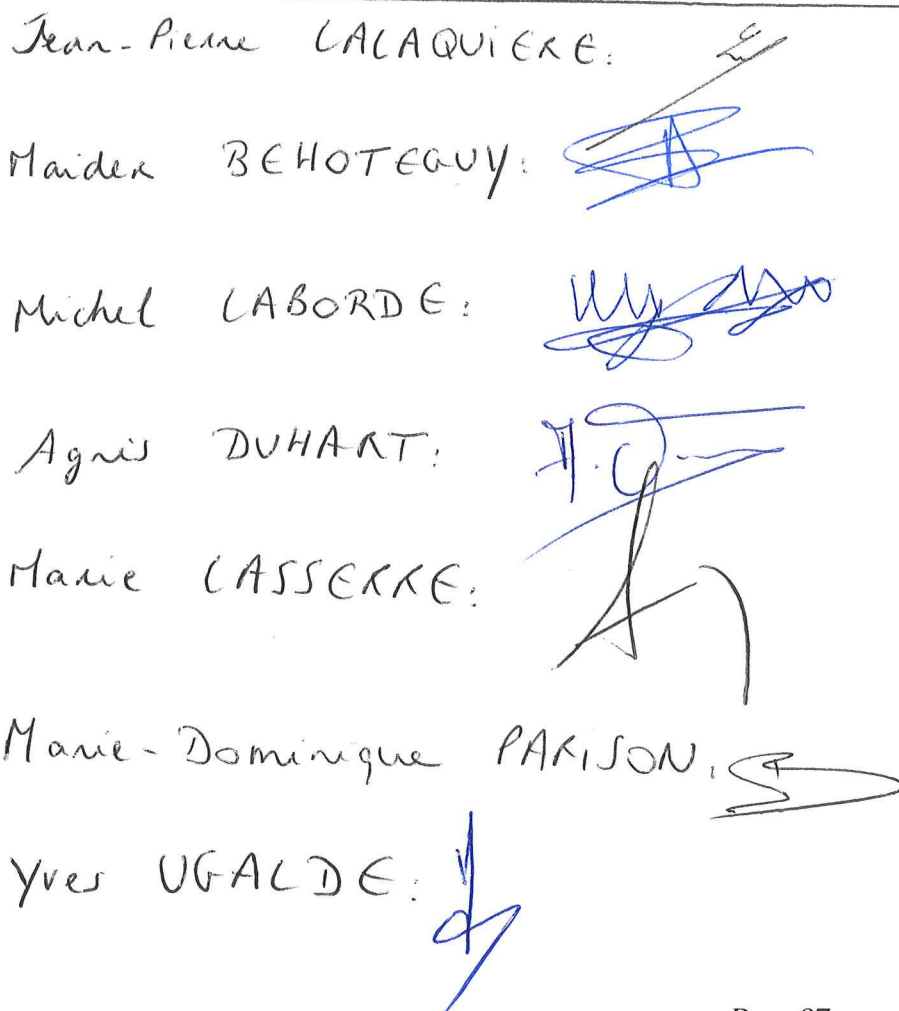 Jean-Pierre LALAQUIERE:
Maider BEHOTEGUY:
Michel LABORDE:
Agnès DUHART:
Marie LASSERRE:
Marie-Dominique PARISON:
Yves UGALDE: